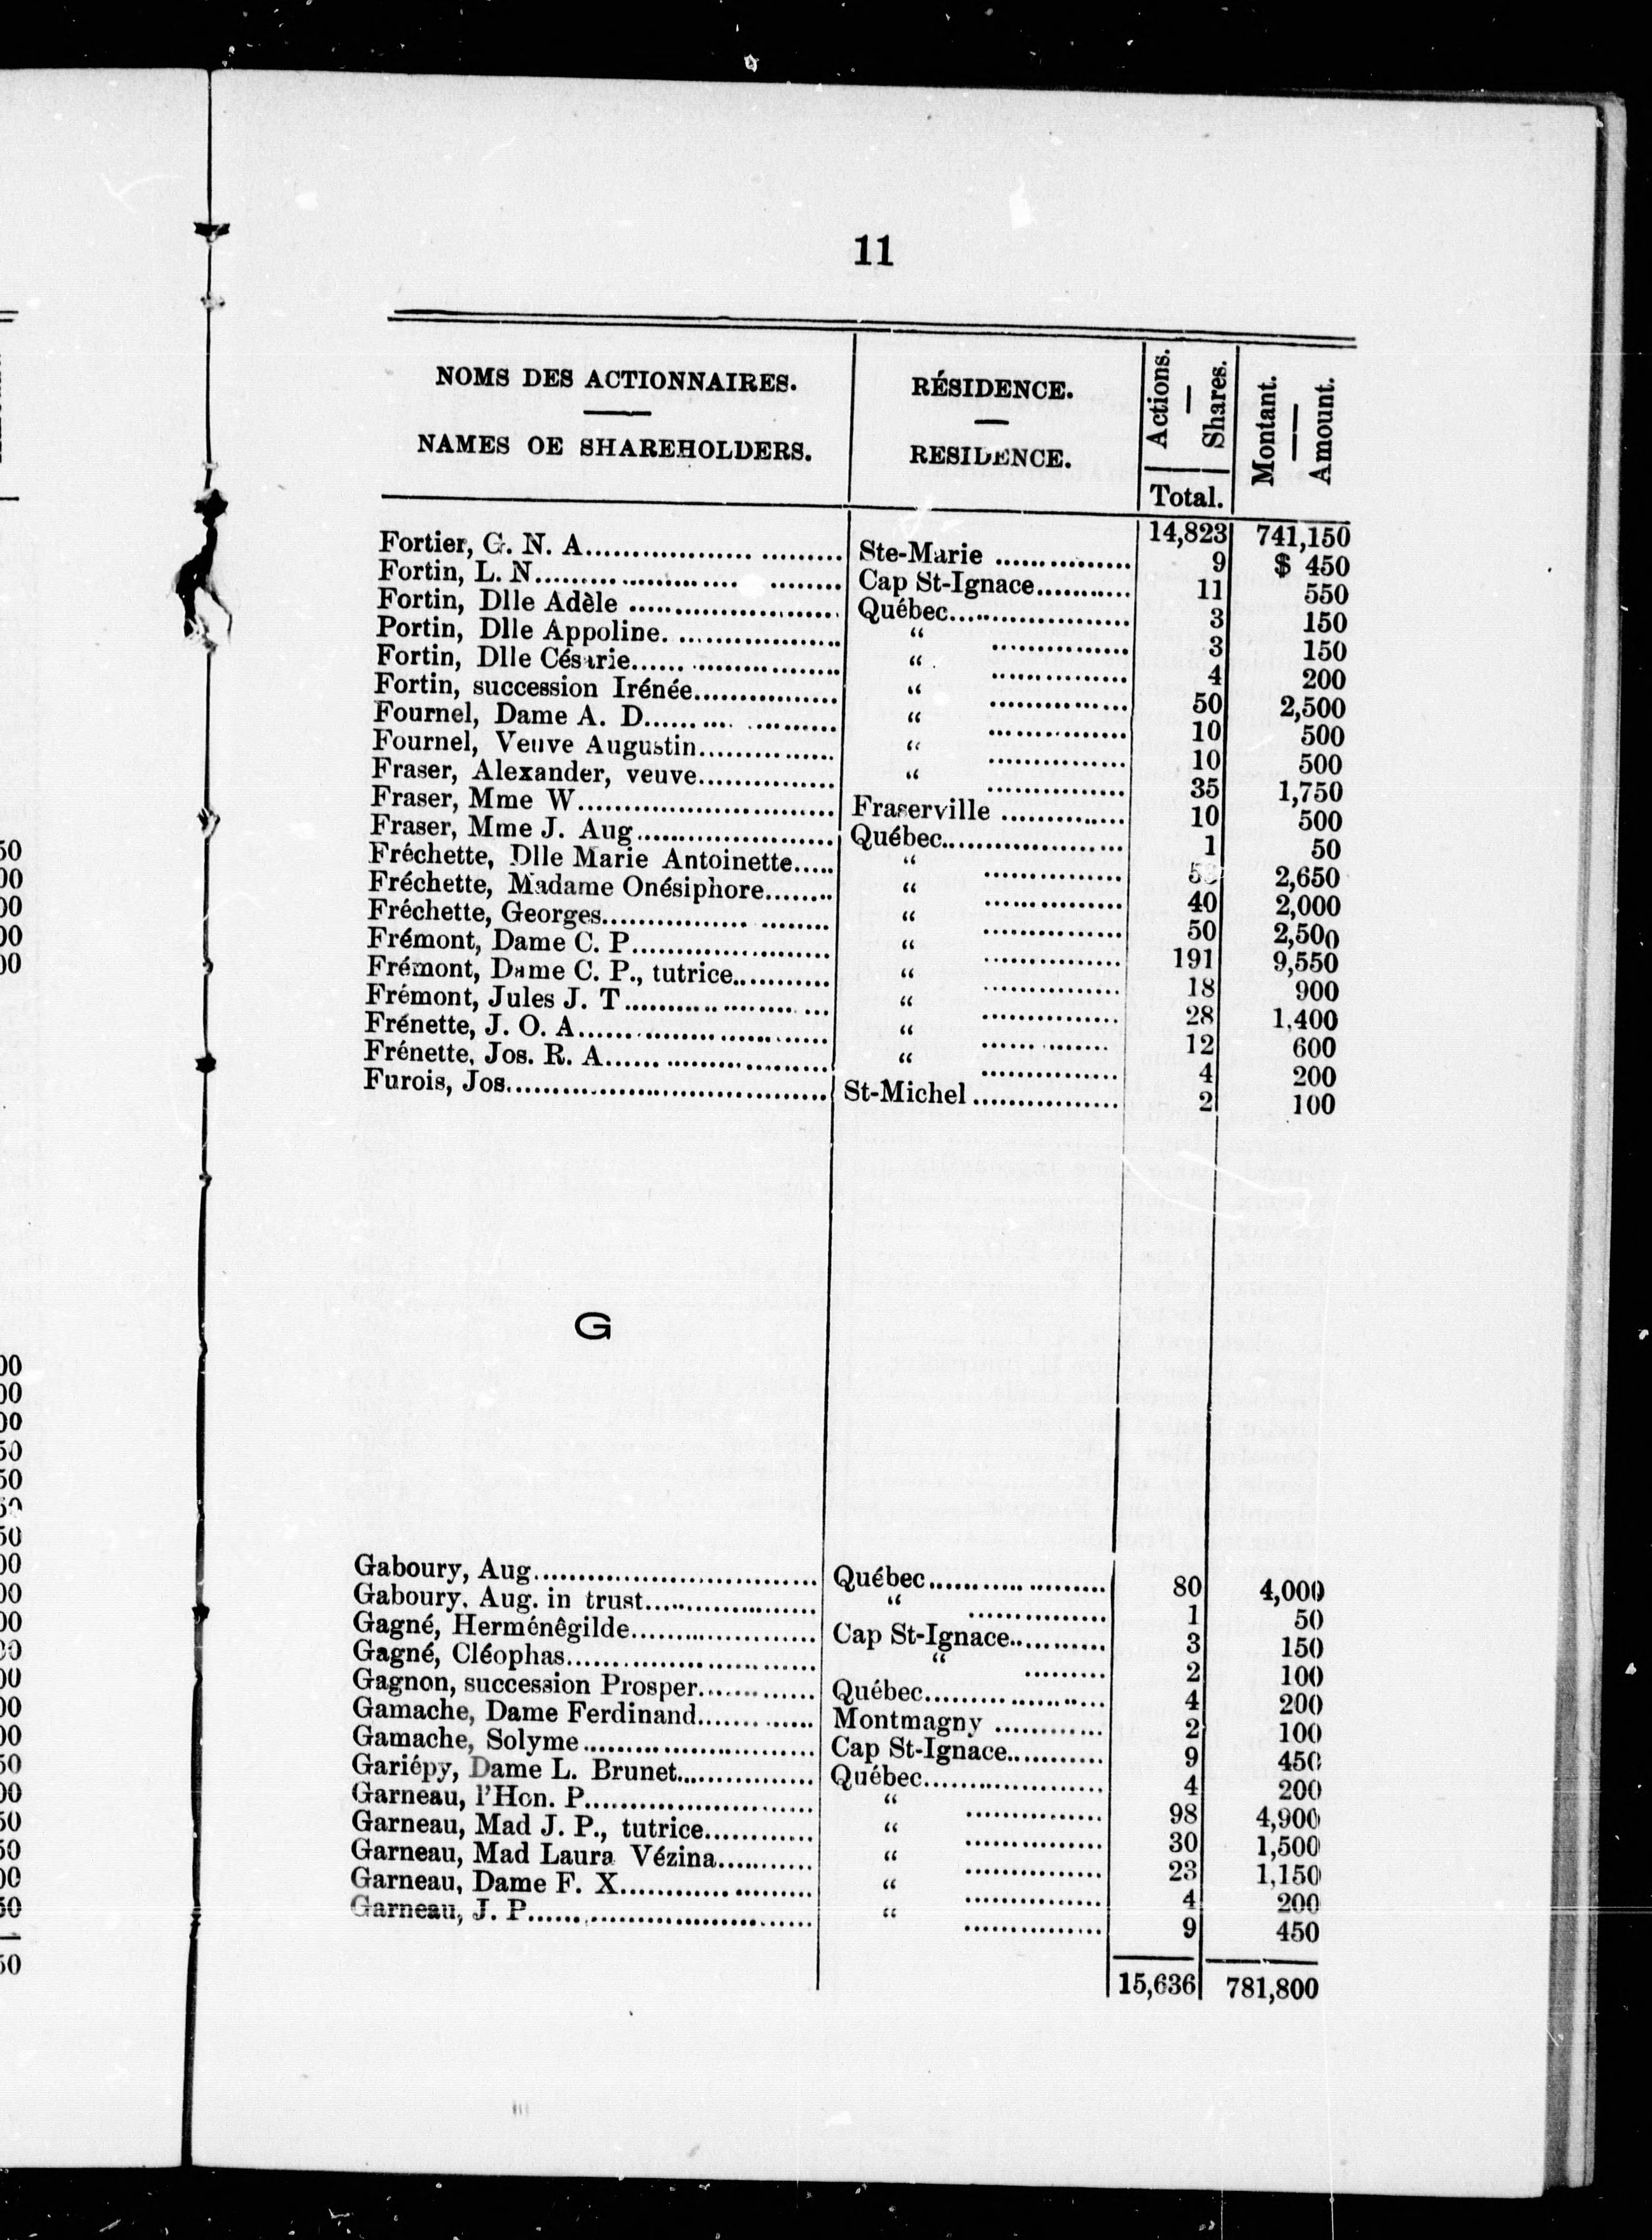 11
NOMS DES ACTIONNAIRES. RÉSIDENCE. Actions. Montant.
NAMES OE SHAREHOLDERS. RESIDENCE. Shares. Amount.
Total.
14,823 741,150
Fortier, G. N. A. Ste-Marie 9 $ 450
Fortin, L. N. Cap St-Ignace 11 550
Fortin, Dlle Adèle Québec 3 150
Portin, Dlle Appoline. “ 3 150
Fortin, Dlle Césarie “ 4 200
Fortin, succession Irénée “ 50 2,500
Fournel, Dame A. D. “ 10 500
Fournel, Veuve Augustin “ 10 500
Fraser, Alexander, veuve “ 35 1,750
Fraser, Mme W. Fraserville 10 500
Fraser, Mme J. Aug. Québec 1 50
Fréchette, Dlle Marie Antoinette “ 2,650
Fréchette, Madame Onésiphore “ 40 2,000
Fréchette, Georges “ 50 2,500
Frémont, Dame C. P. “ 191 9,550
Frémont, Dame C. P., tutrice “ 18 900
Frémont, Jules J. T “ 28 1,400
Frénette, J. O. A. “ 12 600
Frénette, Jos. R. A. “ 4 200
Furois, Jos. St-Michel 2 100
G
Gaboury, Aug. Québec 80 4,000
Gaboury, Aug. in trust “ 1 50
Gagné, Herménêgilde Cap St-Ignace 3 150
Gagné, Cléophas “ 2 100
Gagnon, succession Prosper Québec 4 200
Gamache, Dame Ferdinand Montmagny 2 100
Gamache, Solyme Cap St-Ignace 9 450
Gariépy, Dame L. Brunet Québec 4 200
Garneau, l’Hon. P. “ 98 4,900
Garneau, Mad J. P., tutrice “ 30 1,500
Garneau, Mad Laura Vézina “ 23 1,150
Garneau, Dame F. X. “ 4 200
Garneau, J. P. “ 9 450
15,636 781,800